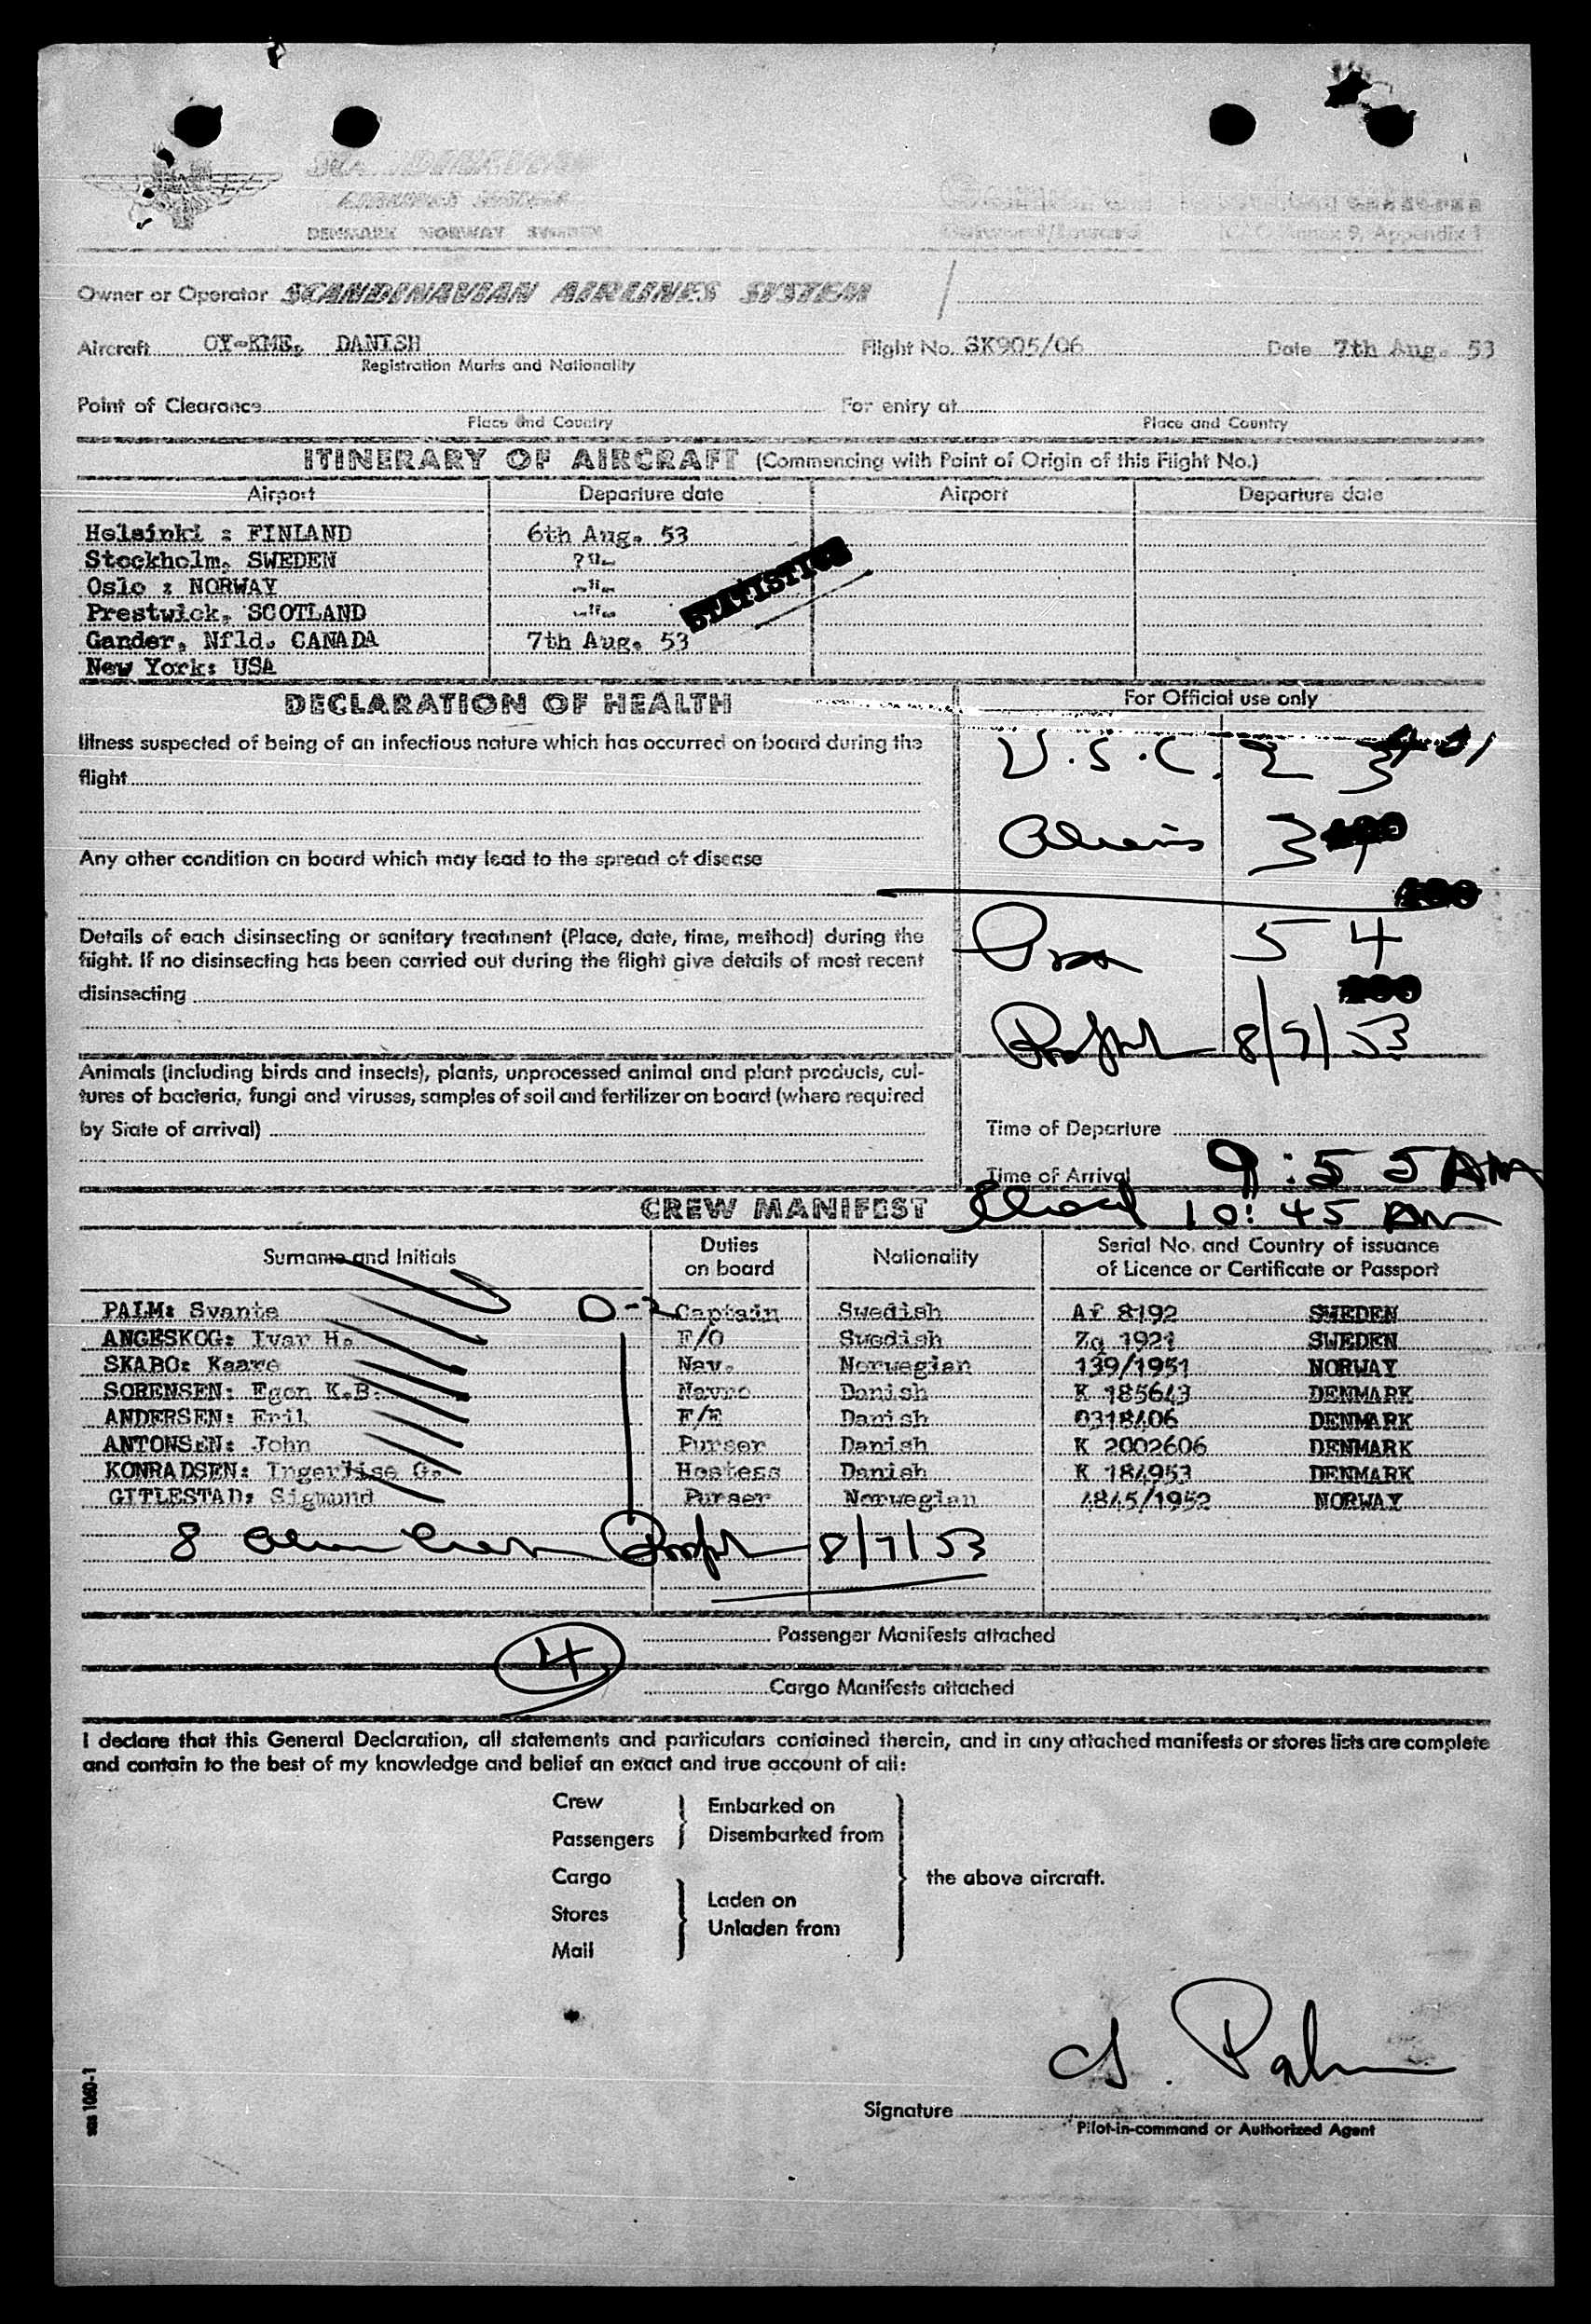 SCANDINAVIAN
AIRLINES SYSTEM
DENMARK NORWAY SWEDEN
Outward/Inward ICAO Annex 9, Appendix 1
Owner or Operator SCANDINAVIAN AIRLINES SYSTEM
Aircraft OY-KME, DANISH Flight No. SK905/06 Date 7th Aug. 53
Registration Marks and Nationality
Point of Clearance For entry at
Place and Country Place and Country
ITINERARY OF AIRCRAFT (Commencing with Point of Origin of this Flight No.)
Airport Departure date Airport Departure date
Helsinki : FINLAND 6th Aug. 53
Stockholm, SWEDEN ?"-
Oslo : NORWAY -"-
Prestwick, SCOTLAND -"-
STATISTICS
Gander, Nfld. CANADA 7th Aug. 53
New York: USA
DECLARATION OF HEALTH
For Official use only
Illness suspected of being of an infectious nature which has occurred on board during the
flight
U.S.C. 23
Any other condition on board which may lead to the spread of disease
Aliens 31
Details of each disinsecting or sanitary treatment (Place, date, time, method) during the
flight. If no disinsecting has been carried out during the flight give details of most recent
disinsecting
54
8/7/53
Animals (including birds and insects), plants, unprocessed animal and plant products, cul-
tures of bacteria, fungi and viruses, samples of soil and fertilizer on board (where required
by State of arrival)
Time of Departure
Time of Arrival 9:55 AM
10:45 AM
CREW MANIFEST
Surname and Initials Duties on board Nationality Serial No. and Country of issuance of Licence or Certificate or Passport
PALM: Svante D-2 Captain Swedish Af 8192 SWEDEN
ANGESKOG: Ivar H. F/O Swedish Zq 1921 SWEDEN
SKABO: Kaare Nav. Norwegian 139/1951 NORWAY
SORENSEN: Egon K.B. Navro Danish K 185643 DENMARK
ANDERSEN: Eril F/E Danish 0318406 DENMARK
ANTONSEN: John Purser Danish K 2002606 DENMARK
KONRADSEN: Ingerlise G. Hostess Danish K 184953 DENMARK
GITLESTAD: Sigmund Purser Norwegian 4845/1952 NORWAY
8 Alien Crew 8/7/53
Passenger Manifests attached
4
Cargo Manifests attached
I declare that this General Declaration, all statements and particulars contained therein, and in any attached manifests or stores lists are complete
and contain to the best of my knowledge and belief an exact and true account of all:
Crew
Embarked on
Passengers
Disembarked from
Cargo
the above aircraft.
Laden on
Stores
Unladen from
Mail
S. Palm
Signature
Pilot-in-command or Authorized Agent
sas 1060-1